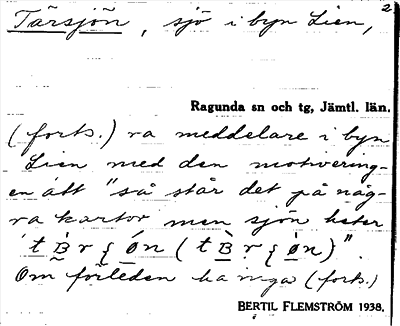 Tärsjön, sjö i byn Lien,
2
Ragunda sn och tg, Jämtl. län.
(forts.) ra meddelare i byn
Lien med den motivering-
en att "så står det på någ-
ra kartor men sjön heter
Om förleden ha nga (forts.)
BERTIL FLEMSTRÖM 1938.